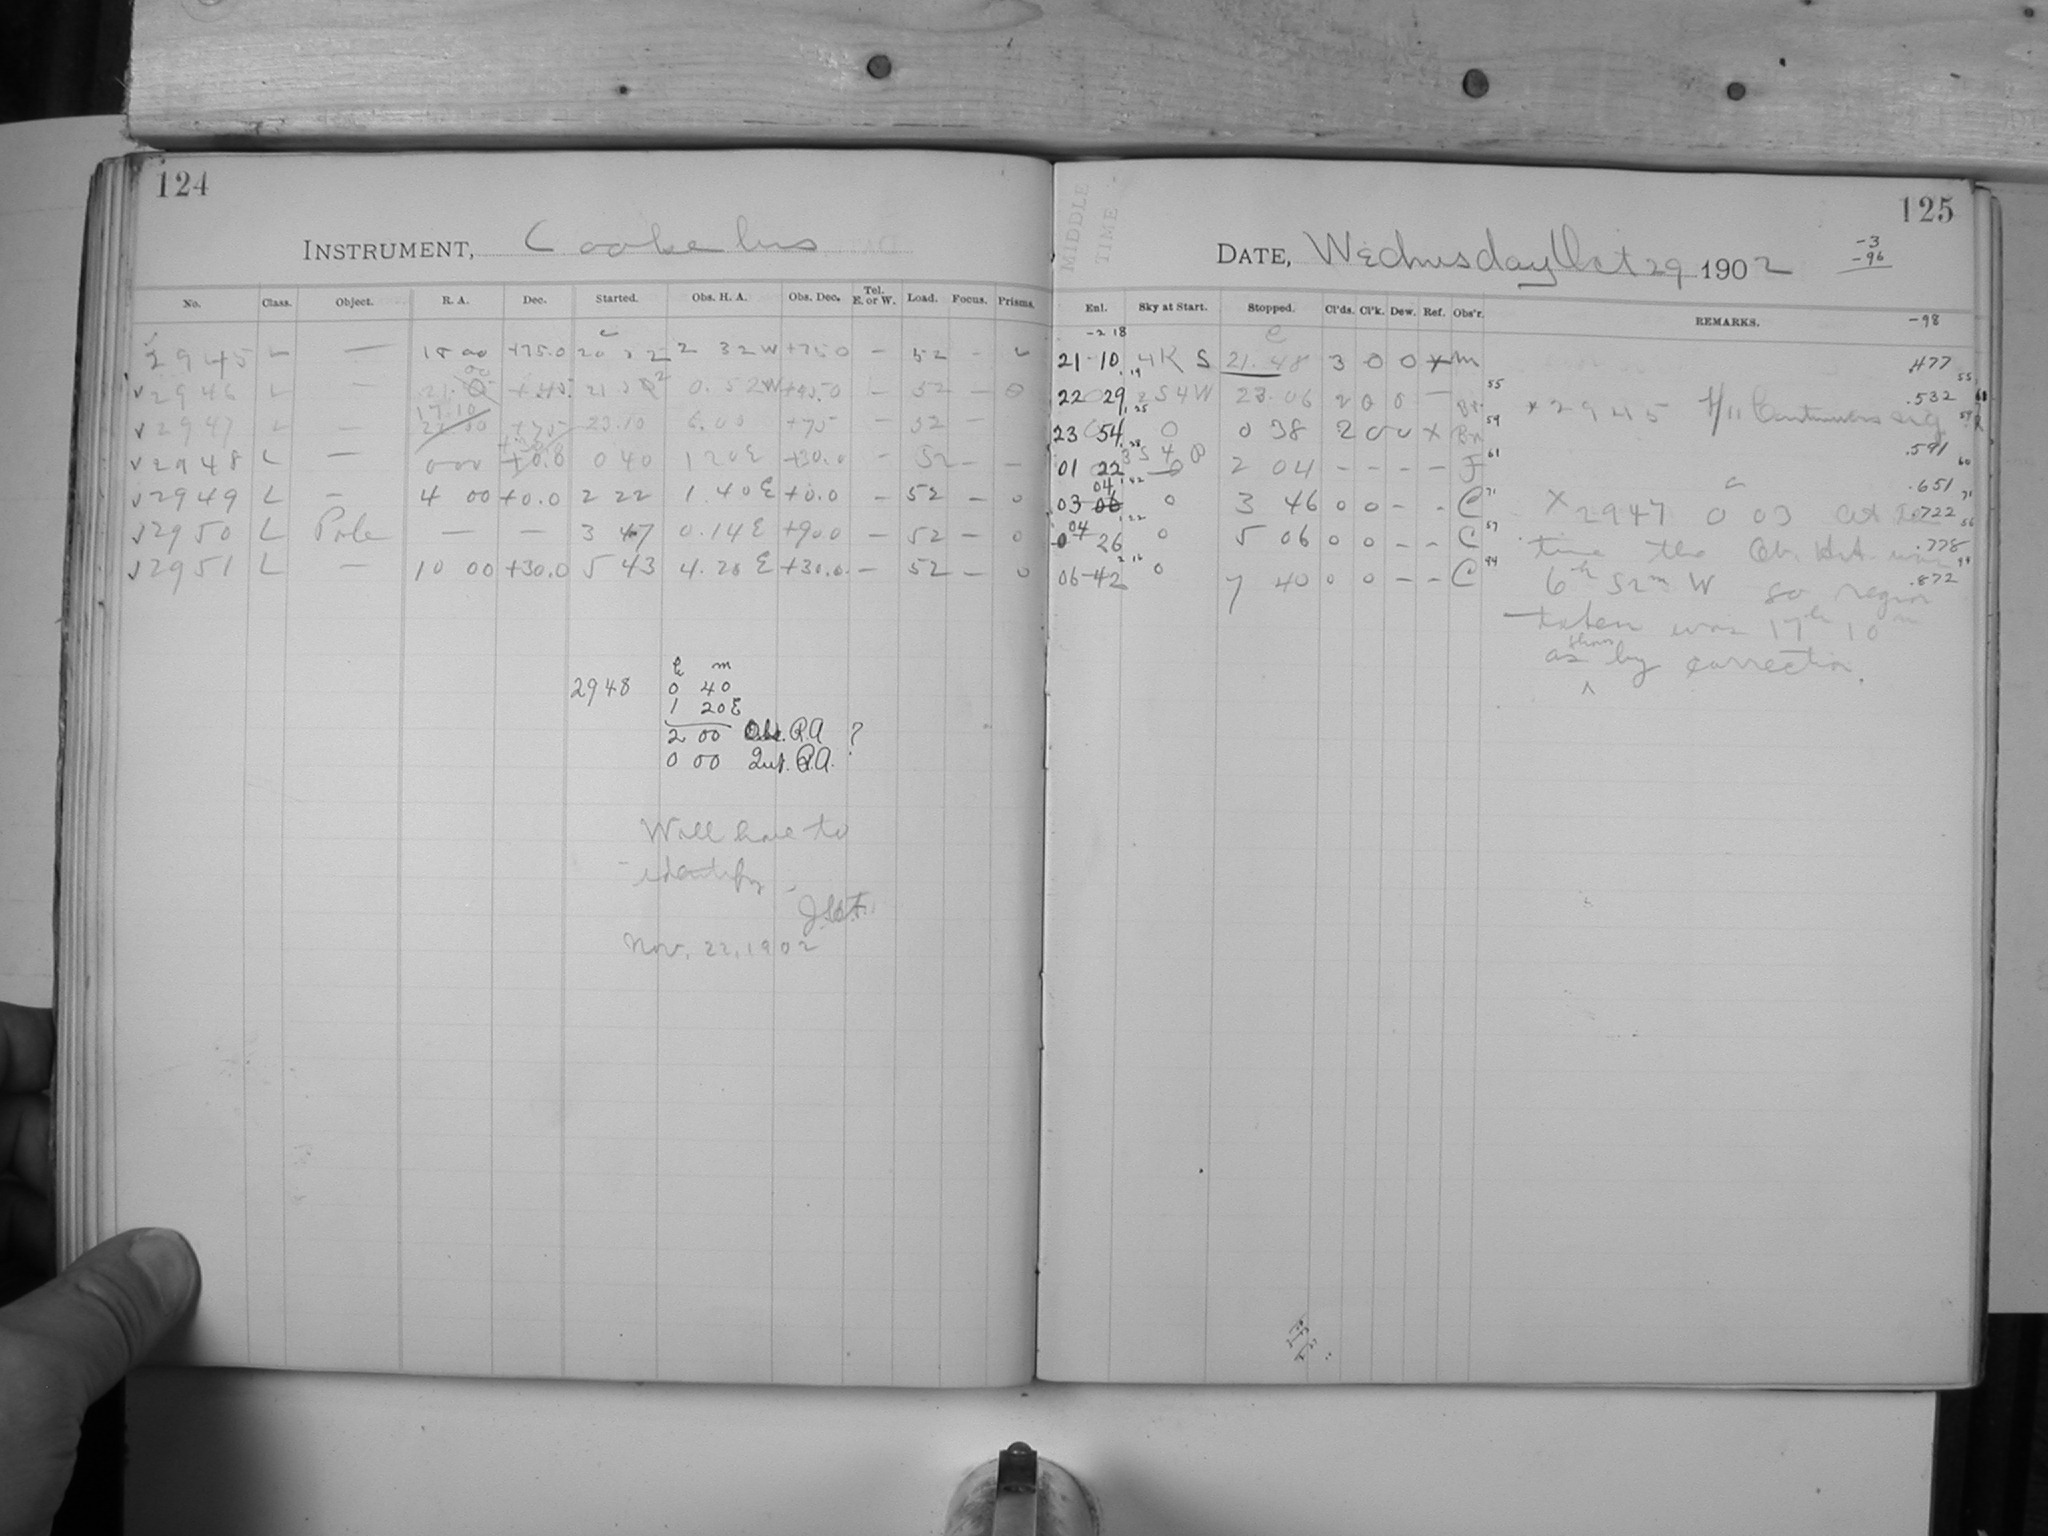 124
INSTRUMENT, Cooke lens
No. Class. Object. R. A. Dec. Started. Obs. H. A. Obs. Dec. Tel. E. or W. Load. Focus. Prisms.
2945 L — 18 00 +75.0 20 32 2 32 W +75.0 — 52 —
✓2946 L — 21. 00 +45. 21 52 0. 52 W +45.0 — 52 — 0
✓2947 L — 17.10 22.00 +75 23.10 6.00 +75 — 52 —
✓2948 L — 0 00 +30.0 +0.0 0 40 1 20 E +30.0 — 52 — —
✓2949 L — 4 00 +0.0 2 22 1. 40 E +0.0 — 52 — 0
✓2950 L Pole — — 3 47 0.14 E +90.0 — 52 — 0
✓2951 L — 10 00 +30.0 5 43 4. 20 E +30.0 — 52 — 0
h m
2948 0 40
1 20 E
2 00 Obs. R.A ?
0 00 Int. R.A.
Will have to
identify
Nov. 22, 1902
125
MIDDLE
TIME
DATE, Wednesday Oct 29 1902
-3
-96
Enl. Sky at Start. Stopped. Cl'ds. Cl'k. Dew. Ref. Obs'r. REMARKS. -98
-2 18
21 10 .19 4K S 21. 48 3 0 0 x M .477
22 29 .25 2 S 4 W 23. 06 2 0 0 — 55 .532 55
23 54 .28 0 0 38 2 0 0 x 59 .591 59
01 22 3 S 4 2 04 — — — — F 61 .651 60
03 04 06 0 3 46 0 0 — — C 71 .722 71
04 26 .22 0 5 06 0 0 — — C 57 .778 56
06 42 2 16 0 7 40 0 0 — — C 94 .872 94
x 2945 Continuous
x 2947 0 03 at
time the Ob. H.A. was
6h 52m W so region
taken was 17h 10m
as shown by correction.